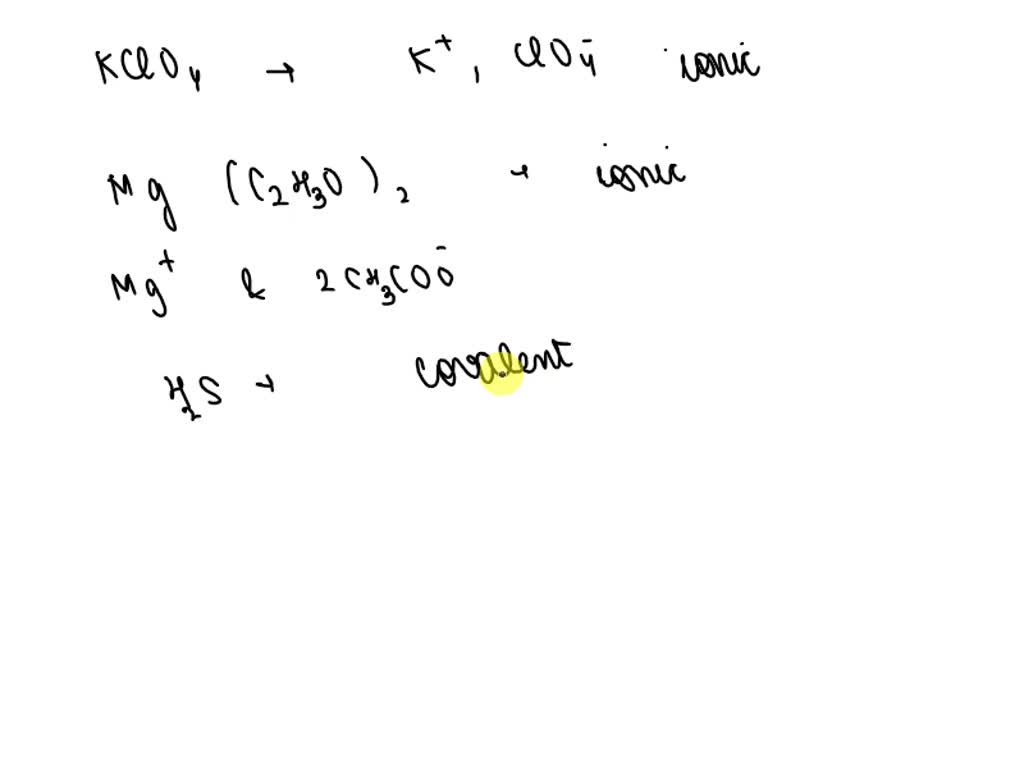 KClO₄ → K⁺, ClO₄⁻ ionic
Mg (C₂H₃O)₂ → ionic
Mg⁺ & 2CH₃COO⁻
H₂S → covalent